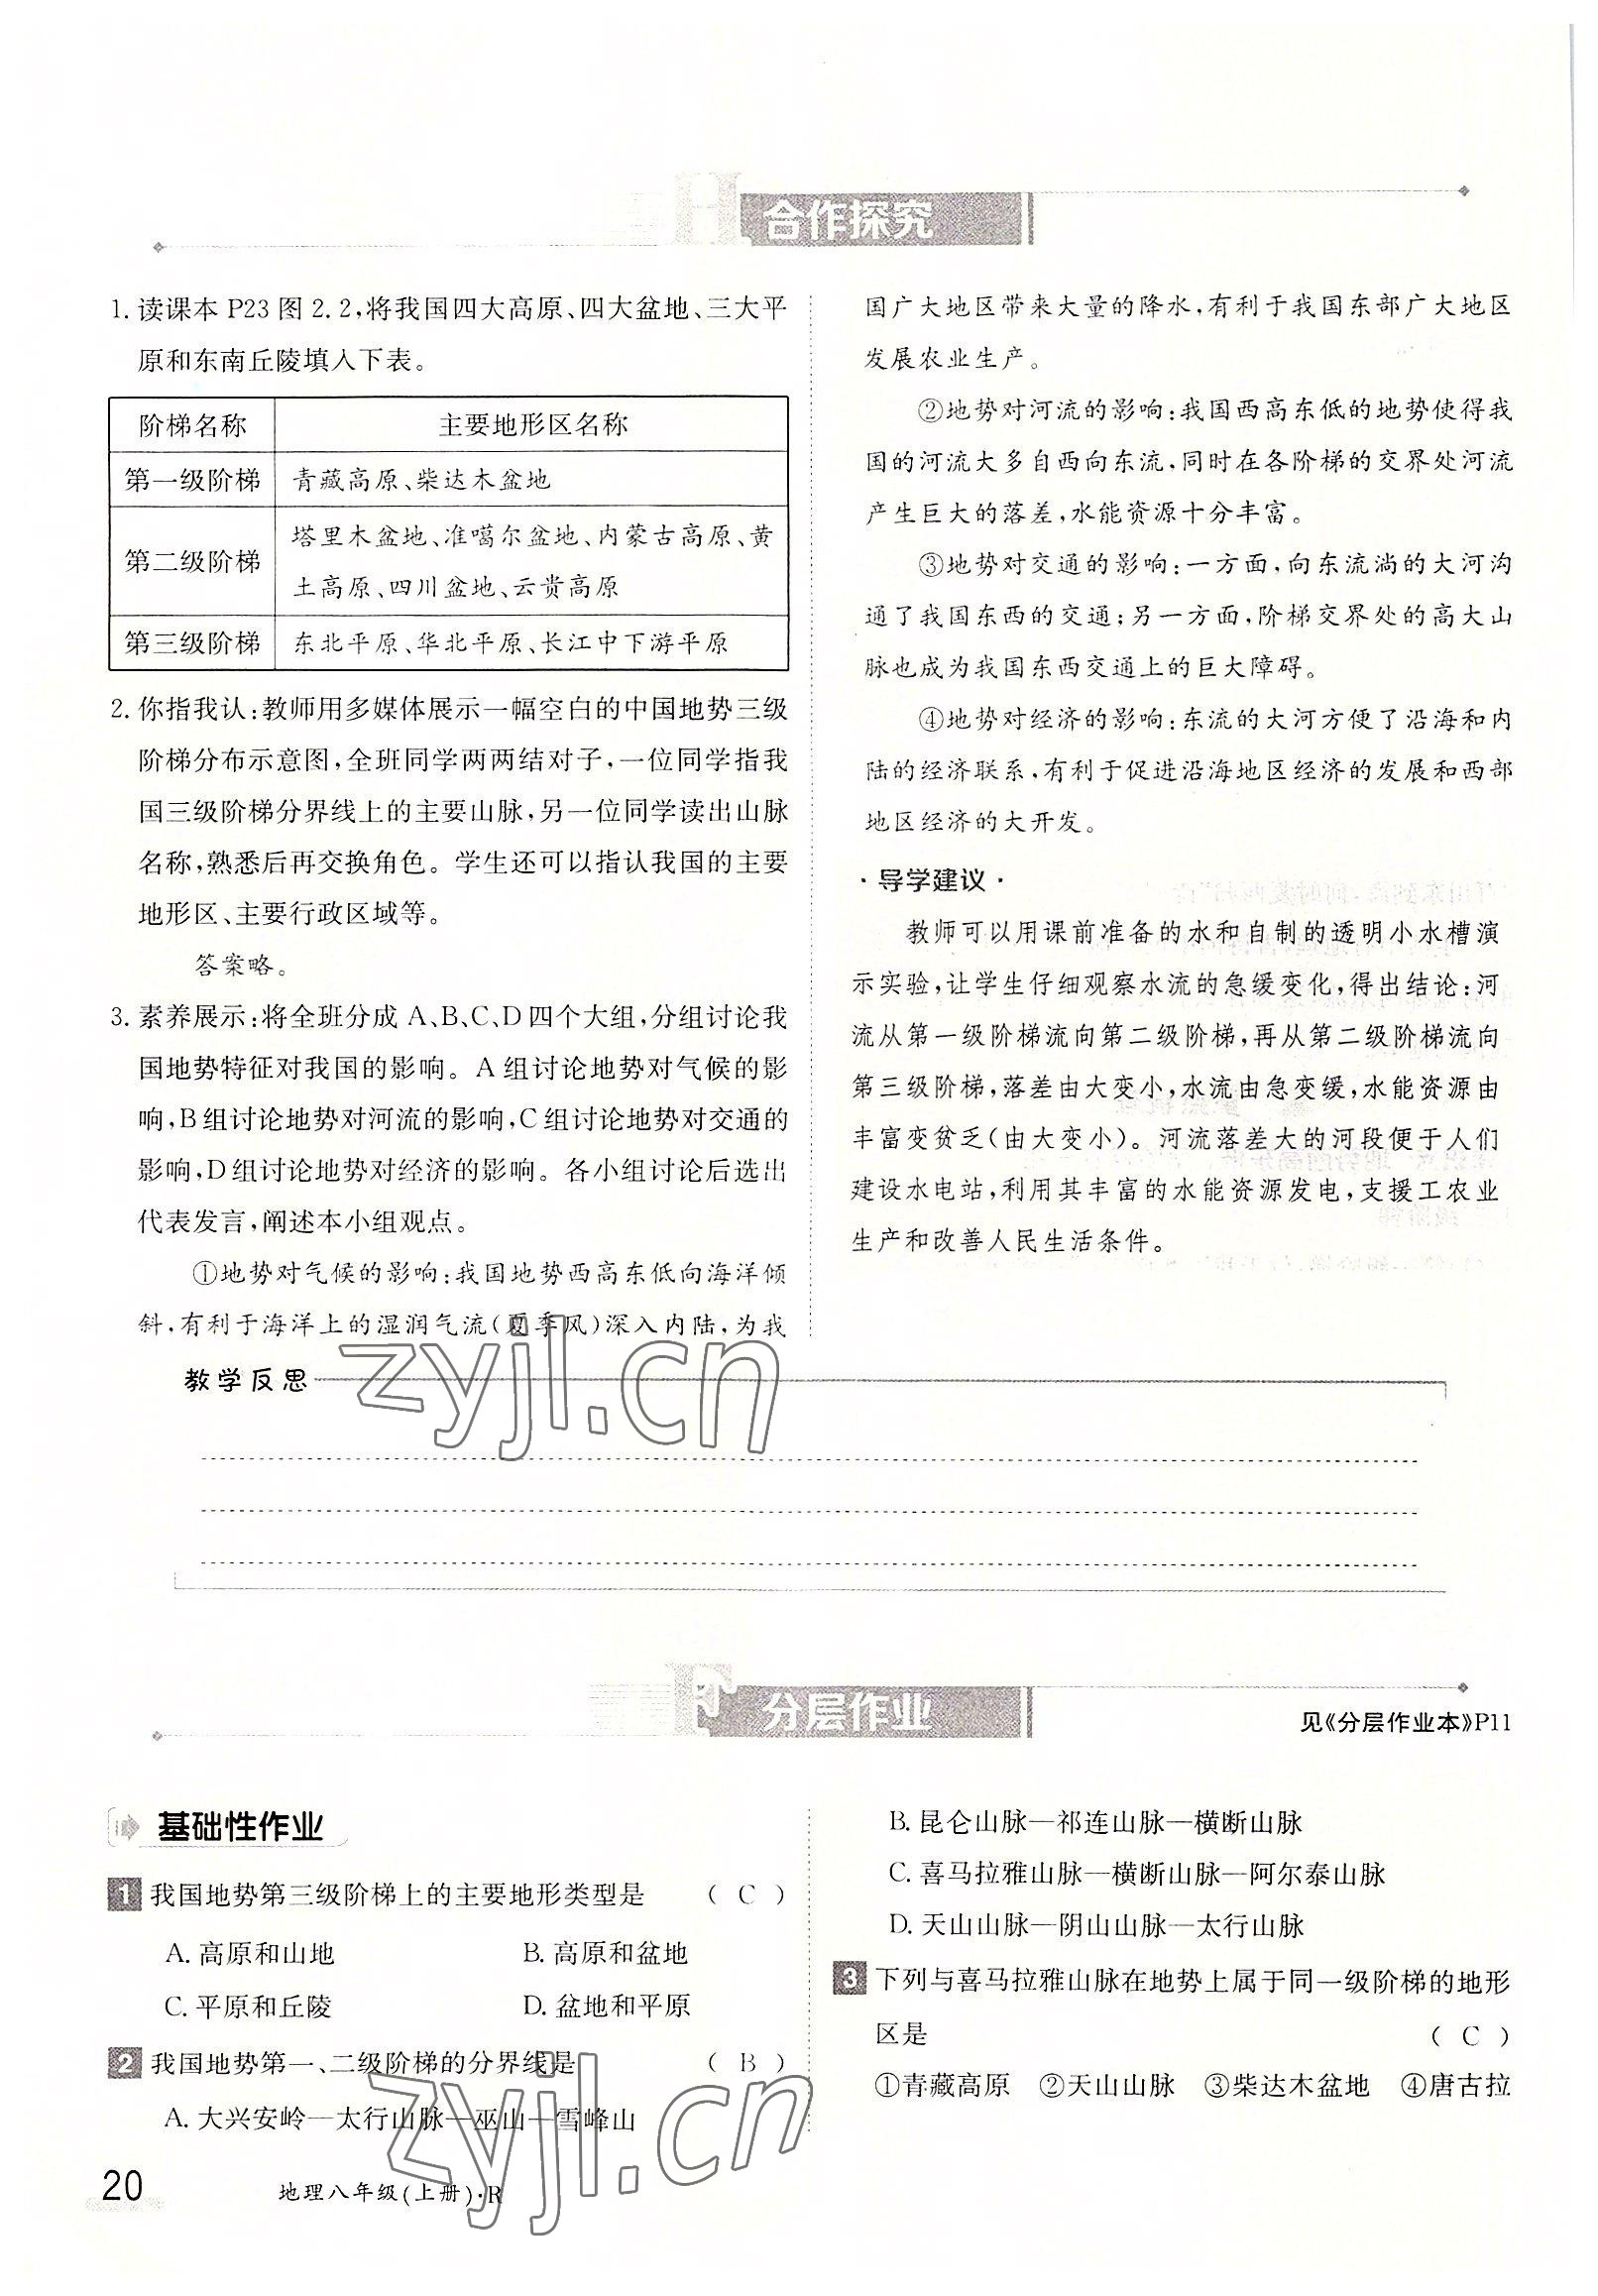 合作探究
1. 读课本 P23 图 2.2,将我国四大高原、四大盆地、三大平
原和东南丘陵填入下表。
阶梯名称 主要地形区名称
第一级阶梯 青藏高原、柴达木盆地
第二级阶梯 塔里木盆地、准噶尔盆地、内蒙古高原、黄
土高原、四川盆地、云贵高原
第三级阶梯 东北平原、华北平原、长江中下游平原
2. 你指我认:教师用多媒体展示一幅空白的中国地势三级
阶梯分布示意图,全班同学两两结对子,一位同学指我
国三级阶梯分界线上的主要山脉,另一位同学读出山脉
名称,熟悉后再交换角色。学生还可以指认我国的主要
地形区、主要行政区域等。
答案略。
3. 素养展示:将全班分成 A、B、C、D四个大组,分组讨论我
国地势特征对我国的影响。A 组讨论地势对气候的影
响,B组讨论地势对河流的影响,C 组讨论地势对交通的
影响,D组讨论地势对经济的影响。各小组讨论后选出
代表发言,阐述本小组观点。
①地势对气候的影响:我国地势西高东低向海洋倾
斜,有利于海洋上的湿润气流(夏季风)深入内陆,为我
国广大地区带来大量的降水,有利于我国东部广大地区
发展农业生产。
②地势对河流的影响:我国西高东低的地势使得我
国的河流大多自西向东流,同时在各阶梯的交界处河流
产生巨大的落差,水能资源十分丰富。
③地势对交通的影响:一方面,向东流淌的大河沟
通了我国东西的交通;另一方面,阶梯交界处的高大山
脉也成为我国东西交通上的巨大障碍。
④地势对经济的影响:东流的大河方便了沿海和内
陆的经济联系,有利于促进沿海地区经济的发展和西部
地区经济的大开发。
·导学建议·
教师可以用课前准备的水和自制的透明小水槽演
示实验,让学生仔细观察水流的急缓变化,得出结论:河
流从第一级阶梯流向第二级阶梯,再从第二级阶梯流向
第三级阶梯,落差由大变小,水流由急变缓,水能资源由
丰富变贫乏(由大变小)。河流落差大的河段便于人们
建设水电站,利用其丰富的水能资源发电,支援工农业
生产和改善人民生活条件。
教学反思
zyjl.cn
分层作业
见《分层作业本》P11
基础性作业
1 我国地势第三级阶梯上的主要地形类型是 ( C )
A. 高原和山地 B. 高原和盆地
C. 平原和丘陵 D. 盆地和平原
2 我国地势第一、二级阶梯的分界线是 ( B )
A. 大兴安岭—太行山脉—巫山—雪峰山
B. 昆仑山脉—祁连山脉—横断山脉
C. 喜马拉雅山脉—横断山脉—阿尔泰山脉
D. 天山山脉—阴山山脉—太行山脉
3 下列与喜马拉雅山脉在地势上属于同一级阶梯的地形
区是 ( C )
①青藏高原 ②天山山脉 ③柴达木盆地 ④唐古拉
zyjl.cn
20 地理八年级(上册)·R